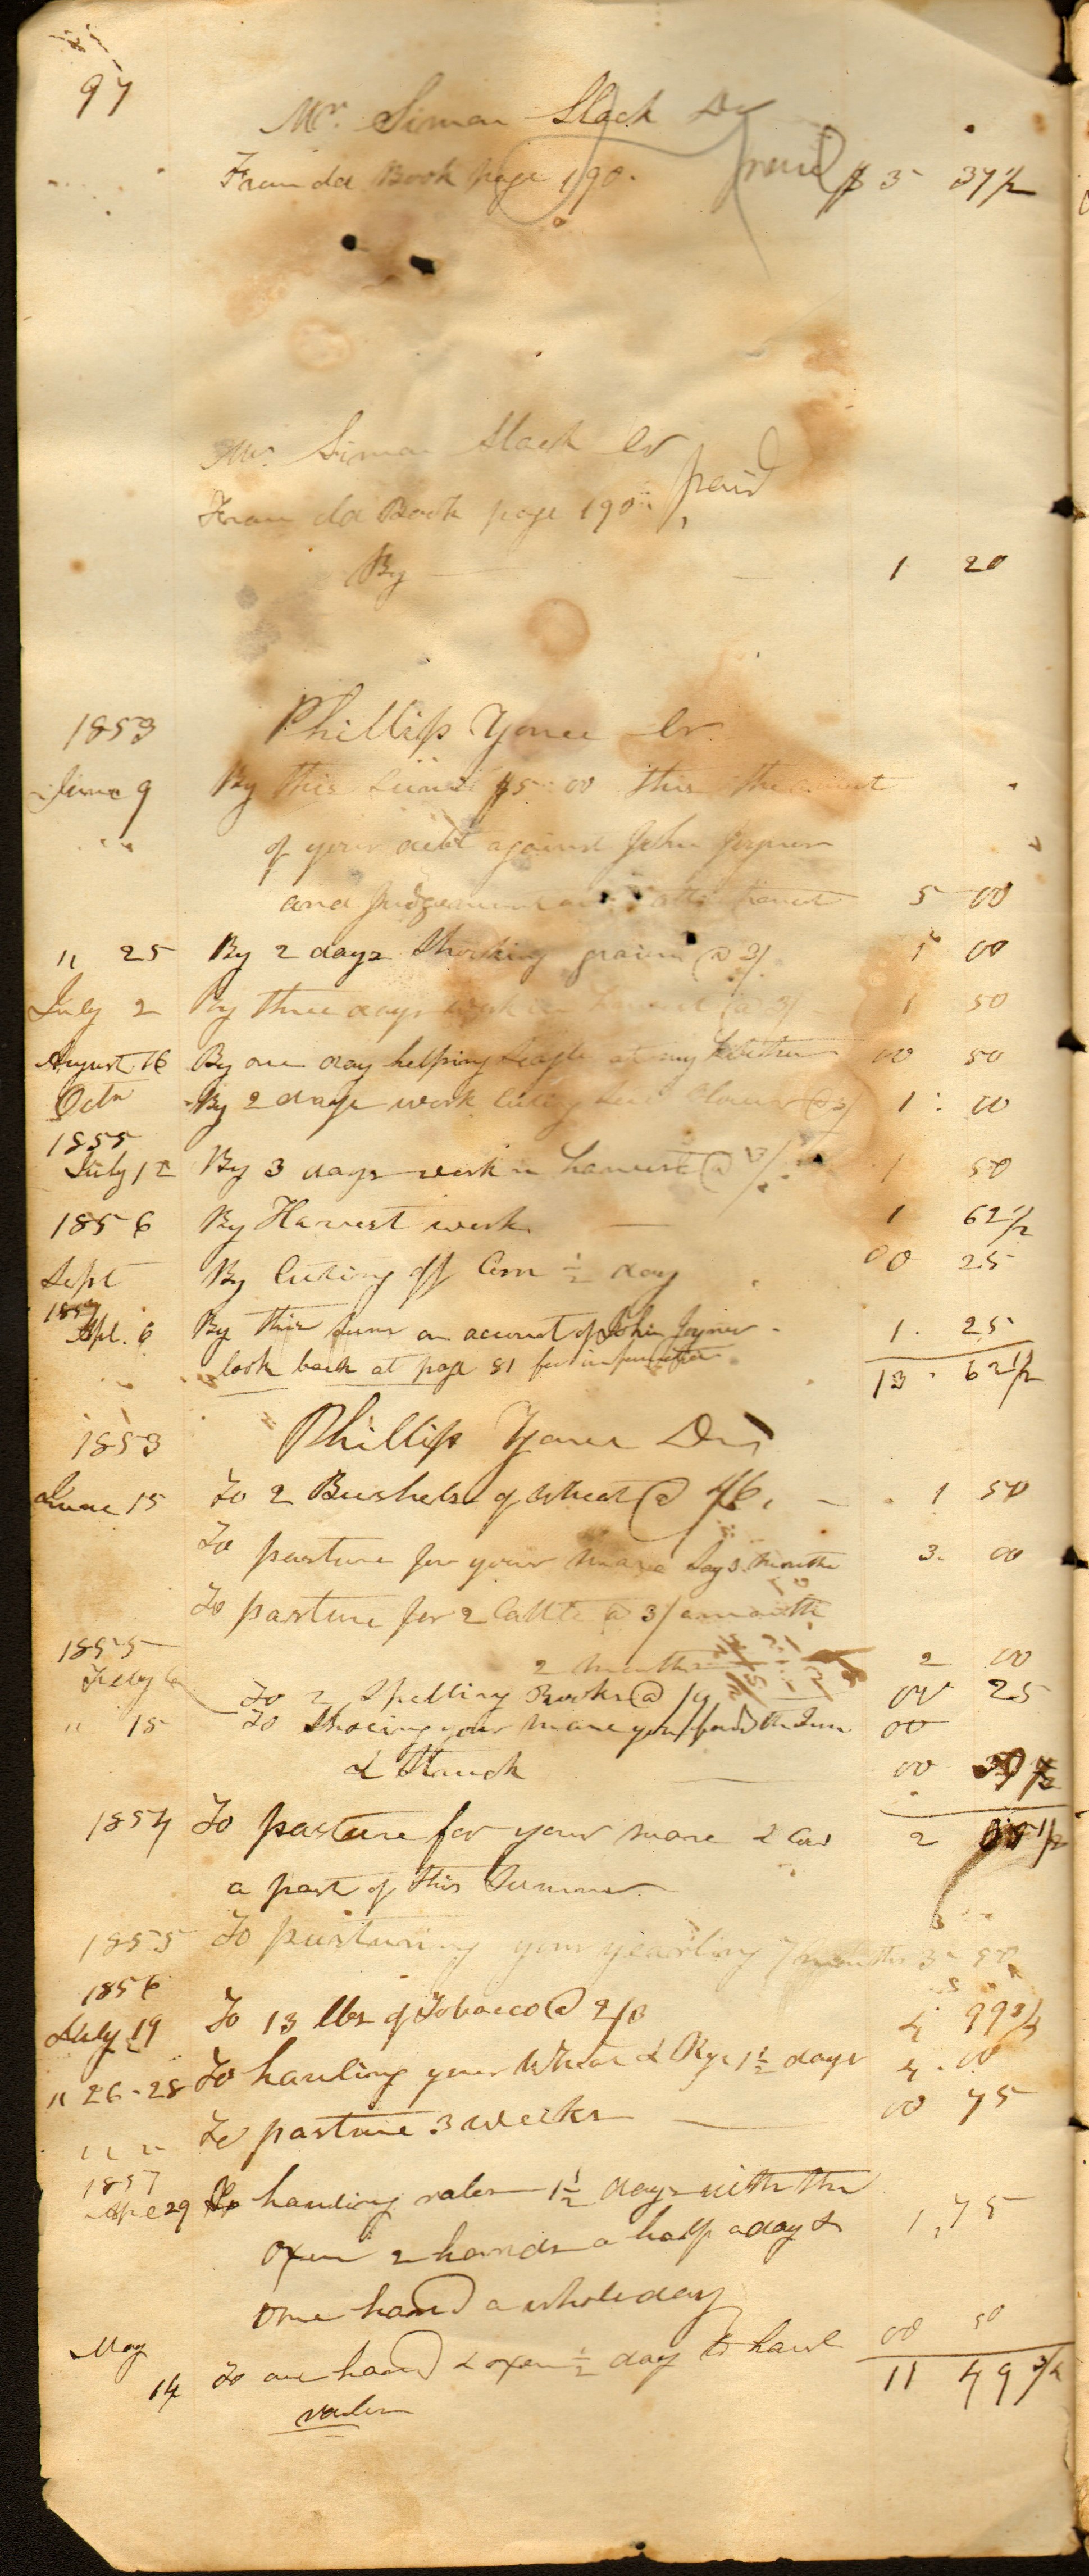 97
Mr. Simon Slack Dr
From old Book page 190. paid $ 3 37 1/2
Mr. Simon Slack Cr
From old Book page 190 paid
By 1 20
1853 Phillip Yonce Cr.
June 9 By this $5.00 this the
of your debt against John Joyner
and Judgement 5 00
" 25 By 2 days Shocking grain @ 3/. 1 00
July 2 By three days work in harvest @ 3/ 1 50
August 16 By one day helping at my 00 50
Octr By 2 days work Clover @ 3/ 1 : 00
1855
July 12 By 3 days work in harvest @ 3/. 1 50
1856 By Harvest work 1 62 1/2
Sept By Cuting off Corn 1/2 day 00 25
1857
Apl. 6 By this sum on account of John Joyner - 1. 25
look back at page 81 for information 13. 62 1/2
1853 Phillip Yonce Dr
June 15 To 2 Bushels of Wheat @ 4/6. 1 50
To pasture for your mare say 3 months 3. 00
To pasture for 2 Cattle @ 3/ a month
2 months 2 00
1855
To 2 Spelling Books @ /9 00 25
" 15 To Shoeing your mare you found the Iron 00
00
1854 To pasture for your mare & Cow 2
a part of this Summer
1855 To pasturing your yearling 7 months 3 50
1856
July 19 To 13 lbs of Tobacco @ 2/3 4 99 3/4
" 26-28 To hauling your Wheat & Rye 1 1/2 days 4.00
" " To pasture 3 weeks 00 75
1857
Aprl 29 To hauling rales 1 1/2 days with the
oxen 2 hands a half a day & 1,75
one hand a whole day
May
14 To one hand & oxen 1/2 day to haul 00 50
rales 11 49